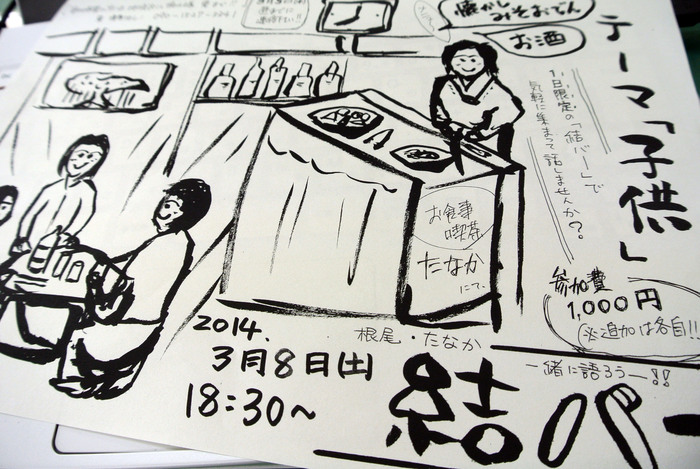 懐かし
みそおでん
お酒
テーマ「子供」
1日限定の「結バー」で
気軽に集まって話しませんか?
お食事
喫茶
たなか
にて。
参加費
1,000円
(※追加は各自!!
2014.
3月8日(土)
18:30~
根尾・たなか
一緒に語ろうー!!
結バー